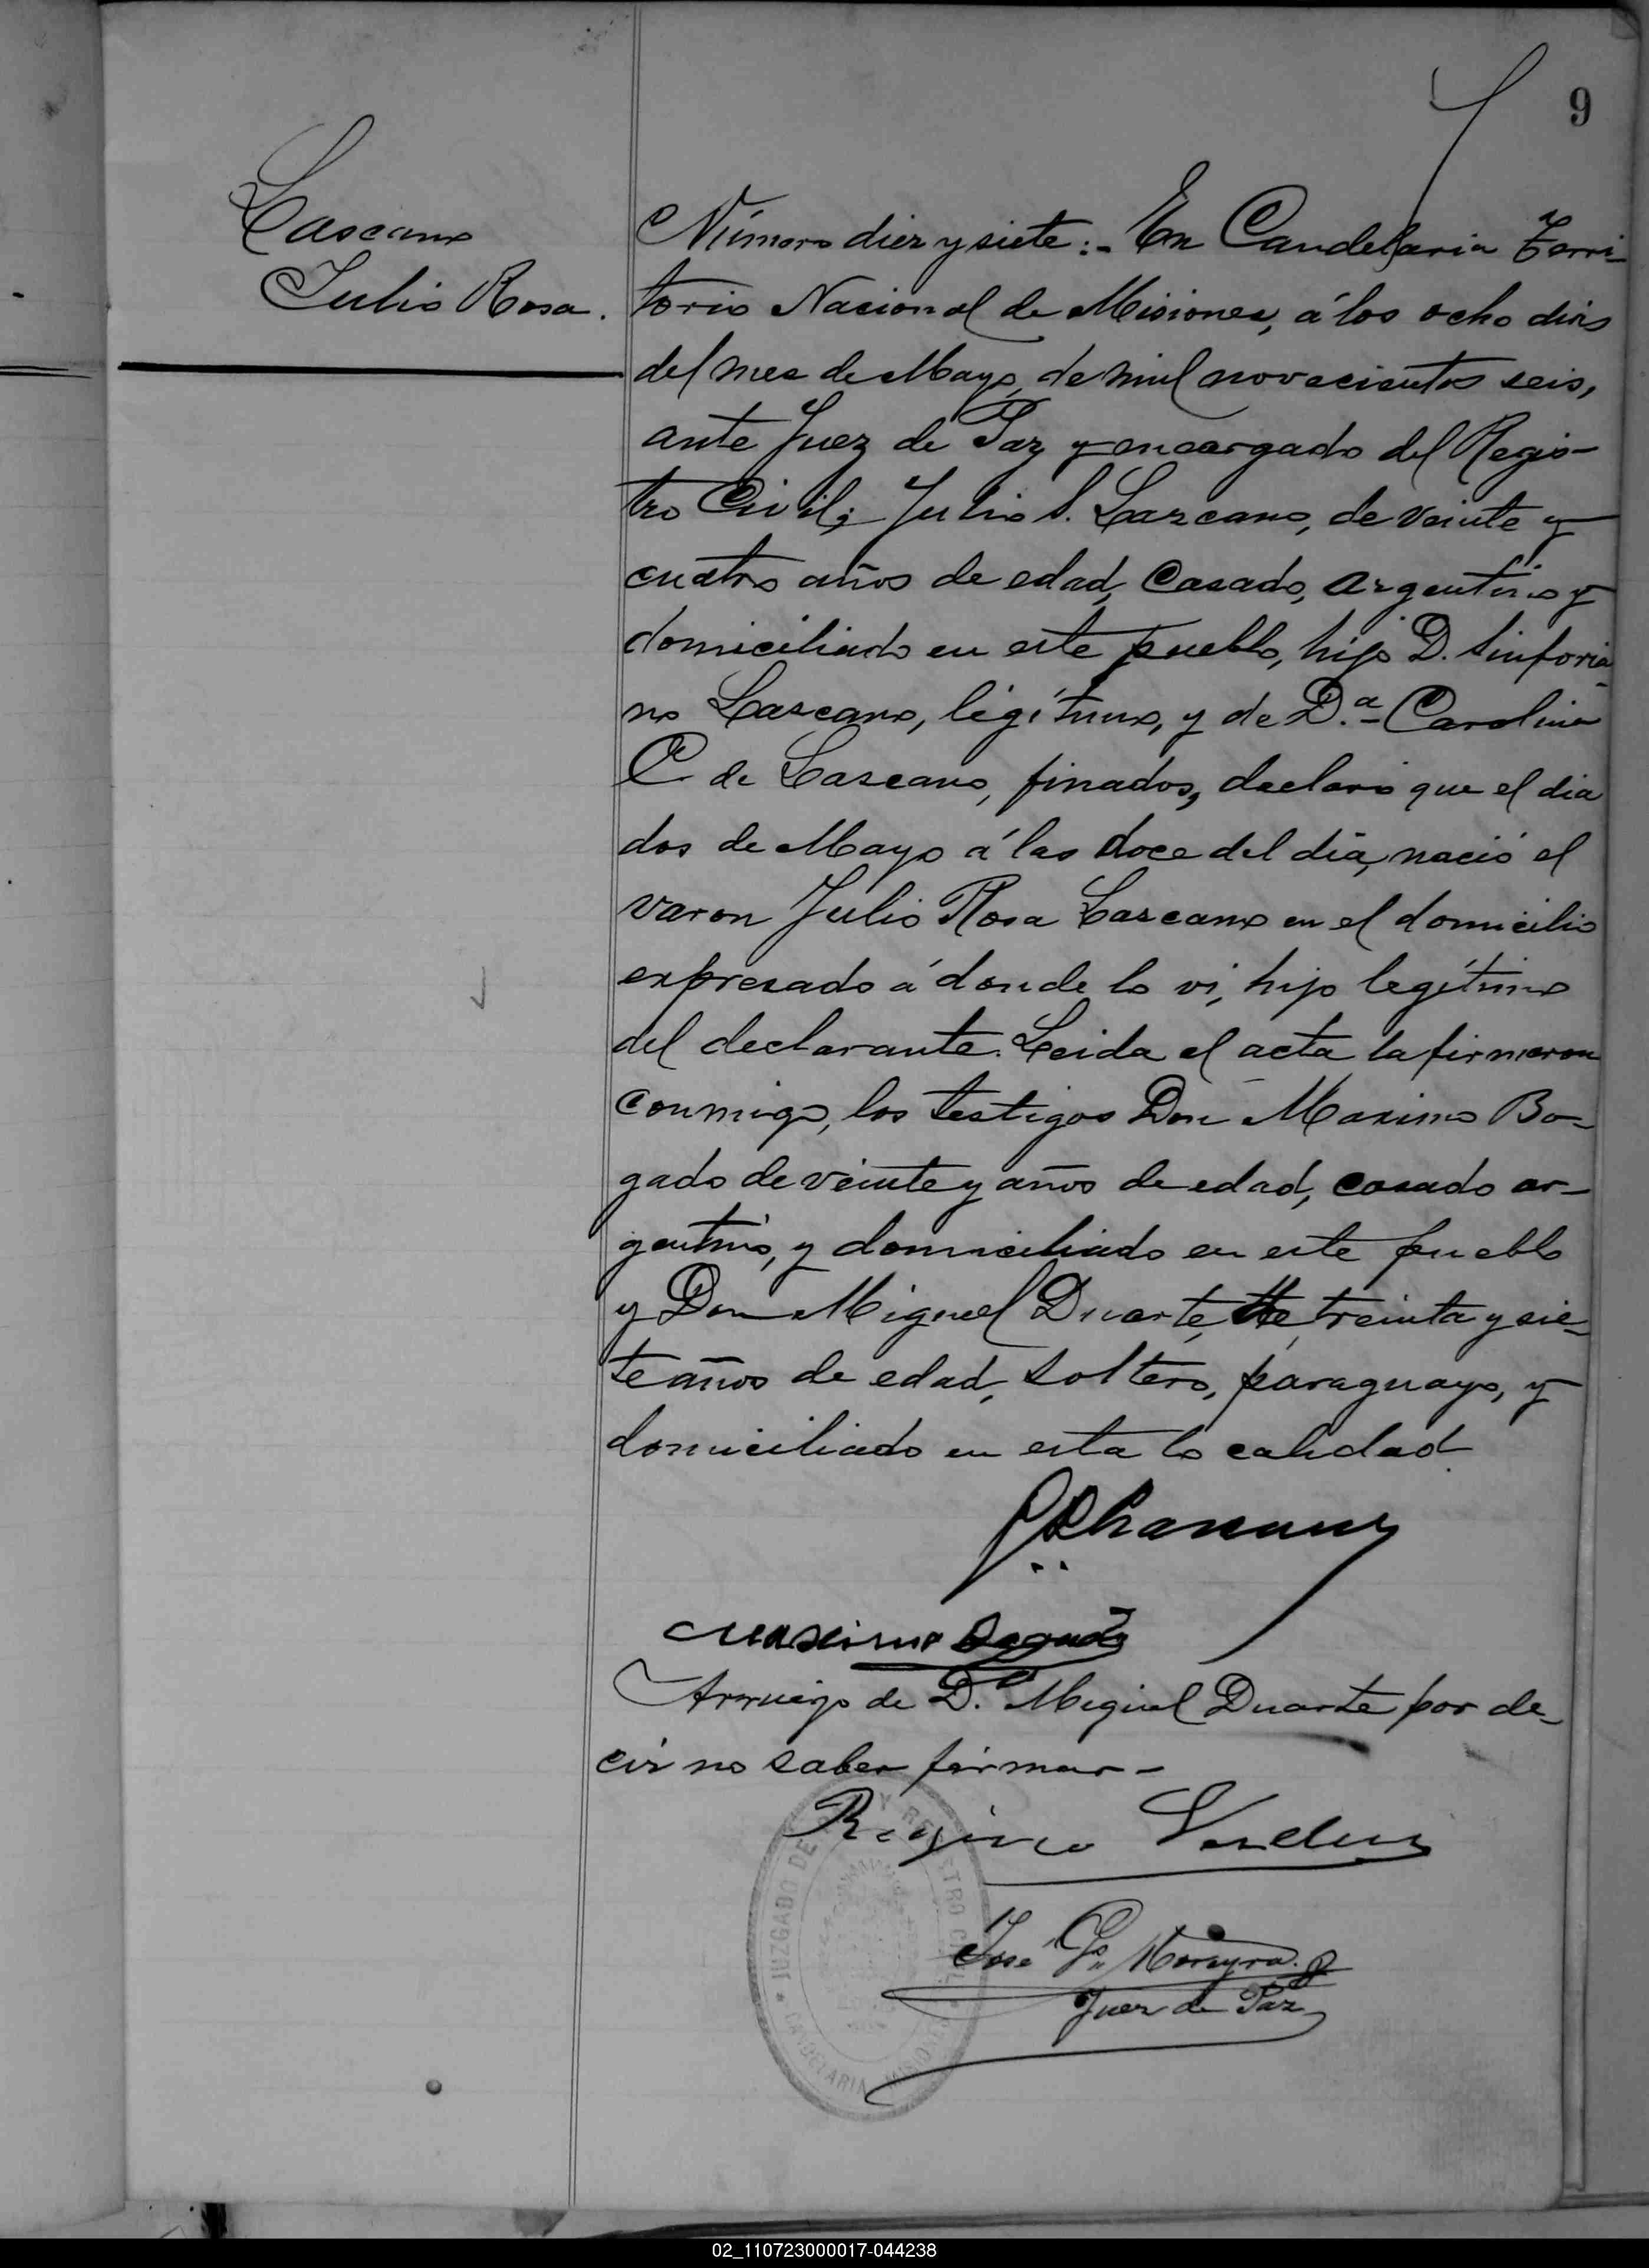 9
Lascano
Julio Rosa.
Número diez y siete:- En Candelaria Terri-
torio Nacional de Misiones, á los ocho dias
del mes de Mayo, de mil novecientos seis,
ante Juez de Paz y encargado del Regis-
tro Civil; Julio S. Lazcano, de veinte y
cuatro años de edad, casado, argentino y
domiciliado en este pueblo, hijo D. Sinforia-
no Lazcano, legítimo, y de D.ª Carolina
C de Lazcano, finados, declaró que el dia
dos de Mayo á las doce del dia, nació el
varon Julio Rosa Lazcano en el domicilio
expresado á donde lo vi, hijo legítimo
del declarante. Leida el acta la firmaron
conmigo, los testigos Don Maximo Bo-
gado de veinte y años de edad, casado ar-
gentino, y domiciliado en este pueblo
y Don Miguel Duarte, de treinta y sie-
te años de edad, soltero, paraguayo, y
domiciliado en esta localidad.
Maximo Bogado
Arruego de D. Miguel Duarte por de-
cir no saber firmar-
José Moreyra
Juez de Paz
JUZGADO DE Y REGISTRO CIVIL
CANDELARIA MISIONES
02_110723000017-044238